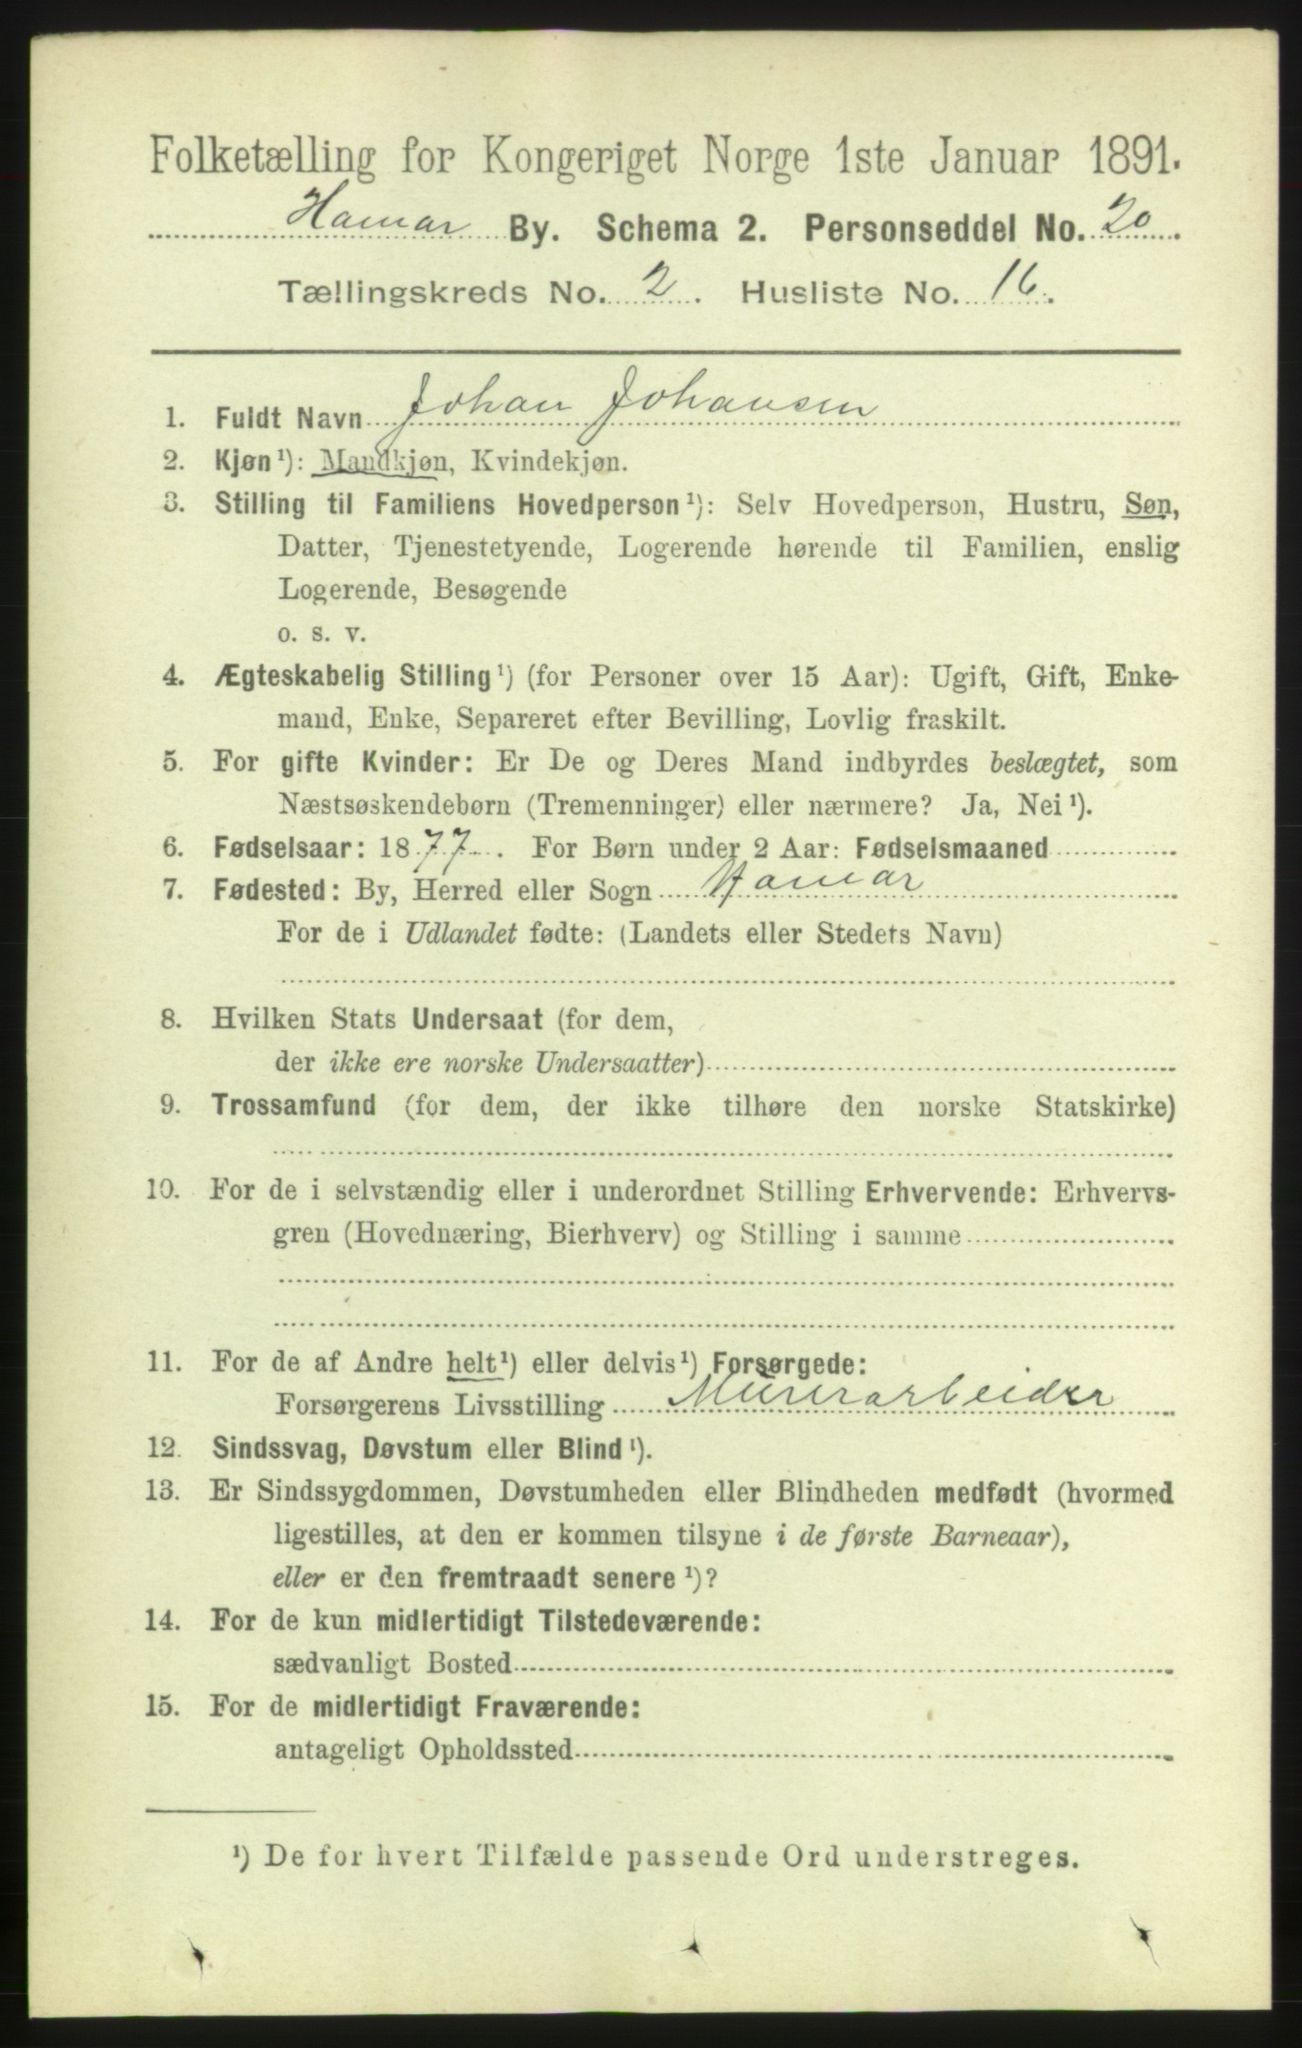 Folketælling for Kongeriget Norge 1ste Januar 1891.
Hamar By. Schema 2. Personseddel No. 20.
Tællingskreds No. 2. Husliste No. 16.
1. Fuldt Navn Johan Johansen
2. Kjøn¹): Mandkjøn, Kvindekjøn.
3. Stilling til Familiens Hovedperson¹): Selv Hovedperson, Hustru, Søn,
Datter, Tjenestetyende, Logerende hørende til Familien, enslig
Logerende, Besøgende
o. s. v.
4. Ægteskabelig Stilling¹) (for Personer over 15 Aar): Ugift, Gift, Enke-
mand, Enke, Separeret efter Bevilling, Lovlig fraskilt.
5. For gifte Kvinder: Er De og Deres Mand indbyrdes beslægtet, som
Næstsøskendebørn (Tremenninger) eller nærmere? Ja, Nei¹).
6. Fødselsaar: 1877. For Børn under 2 Aar: Fødselsmaaned
7. Fødested: By, Herred eller Sogn Hamar
For de i Udlandet fødte: (Landets eller Stedets Navn)
8. Hvilken Stats Undersaat (for dem,
der ikke ere norske Undersaatter)
9. Trossamfund (for dem, der ikke tilhøre den norske Statskirke)
10. For de i selvstændig eller i underordnet Stilling Erhvervende: Erhvervs-
gren (Hovednæring, Bierhverv) og Stilling i samme
11. For de af Andre helt¹) eller delvis¹) Forsørgede:
Forsørgerens Livsstilling Murerarbeider
12. Sindssvag, Døvstum eller Blind¹).
13. Er Sindssygdommen, Døvstumheden eller Blindheden medfødt (hvormed
ligestilles, at den er kommen tilsyne i de første Barneaar),
eller er den fremtraadt senere¹)?
14. For de kun midlertidigt Tilstedeværende:
sædvanligt Bosted
15. For de midlertidigt Fraværende:
antageligt Opholdssted
¹) De for hvert Tilfælde passende Ord understreges.